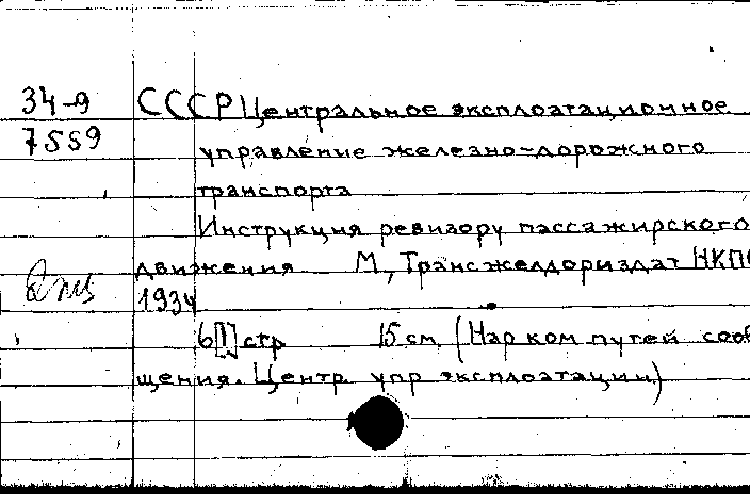 34-9 СССР Центральное эксплоатационное
7559 управление железно-дорожного
транспорта
Инструкция ревизору пассажирского
движения М, Трансжелдориздат НКПС
1934
6[1] стр 15 см. (Нар ком путей сооб
щения. Центр. упр эксплоатации)